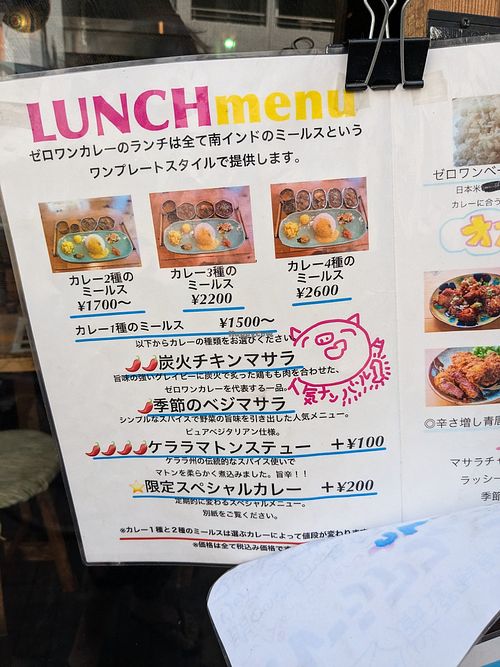 LUNCHmenu
ゼロワンカレーのランチは全て南インドのミールスという
ワンプレートスタイルで提供します。
カレー2種の
ミールス
¥1700〜
カレー3種の
ミールス
¥2200
カレー4種の
ミールス
¥2600
カレー1種のミールス ¥1500〜
以下からカレーの種類をお選びください
炭火チキンマサラ
旨味の強いグレイビーに炭火で炙った鶏もも肉を合わせた、
ゼロワンカレーを代表する一品。
人気ナンバー1
季節のベジマサラ
シンプルなスパイスで野菜の旨味を引き出した人気メニュー。
ピュアベジタリアン仕様。
ケララマトンステュー +¥100
ケララ州の伝統的なスパイス使いで
マトンを柔らかく煮込みました。旨辛！！
☆限定スペシャルカレー +¥200
定期的に変わるスペシャルメニュー。
別紙をご覧ください。
※カレー1種と2種のミールスは選ぶカレーによって値段が変わります
※価格は全て税込み価格です
ゼロワンベー
日本米
カレーに合う
オ
◎辛さ増し青唐
マサラチャ
ラッシー
季節